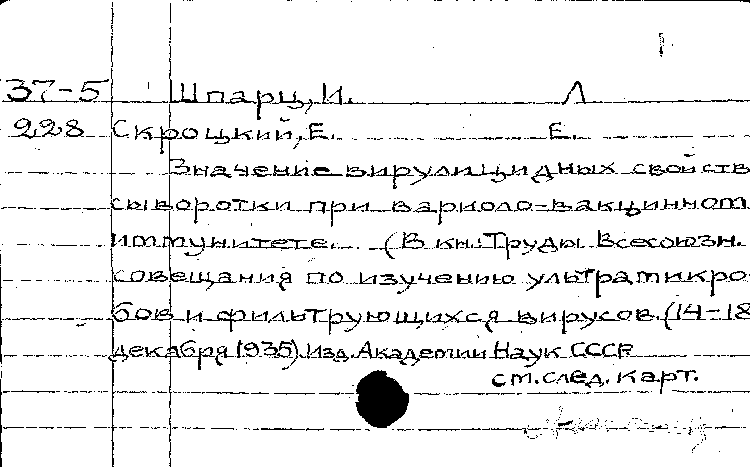 37-5 Шпарц, И. Л
228 Скроцкий, Е. Е.
Значение вирулицидных свойств
сыворотки при вариоло-вакцинном
иммунитете. (В кн.: Труды Всесоюзн.
совещания по изучению ультрамикро-
бов и фильтрующихся вирусов. (14-18
декабря 1935). Изд. Академии Наук СССР
см. след. карт.